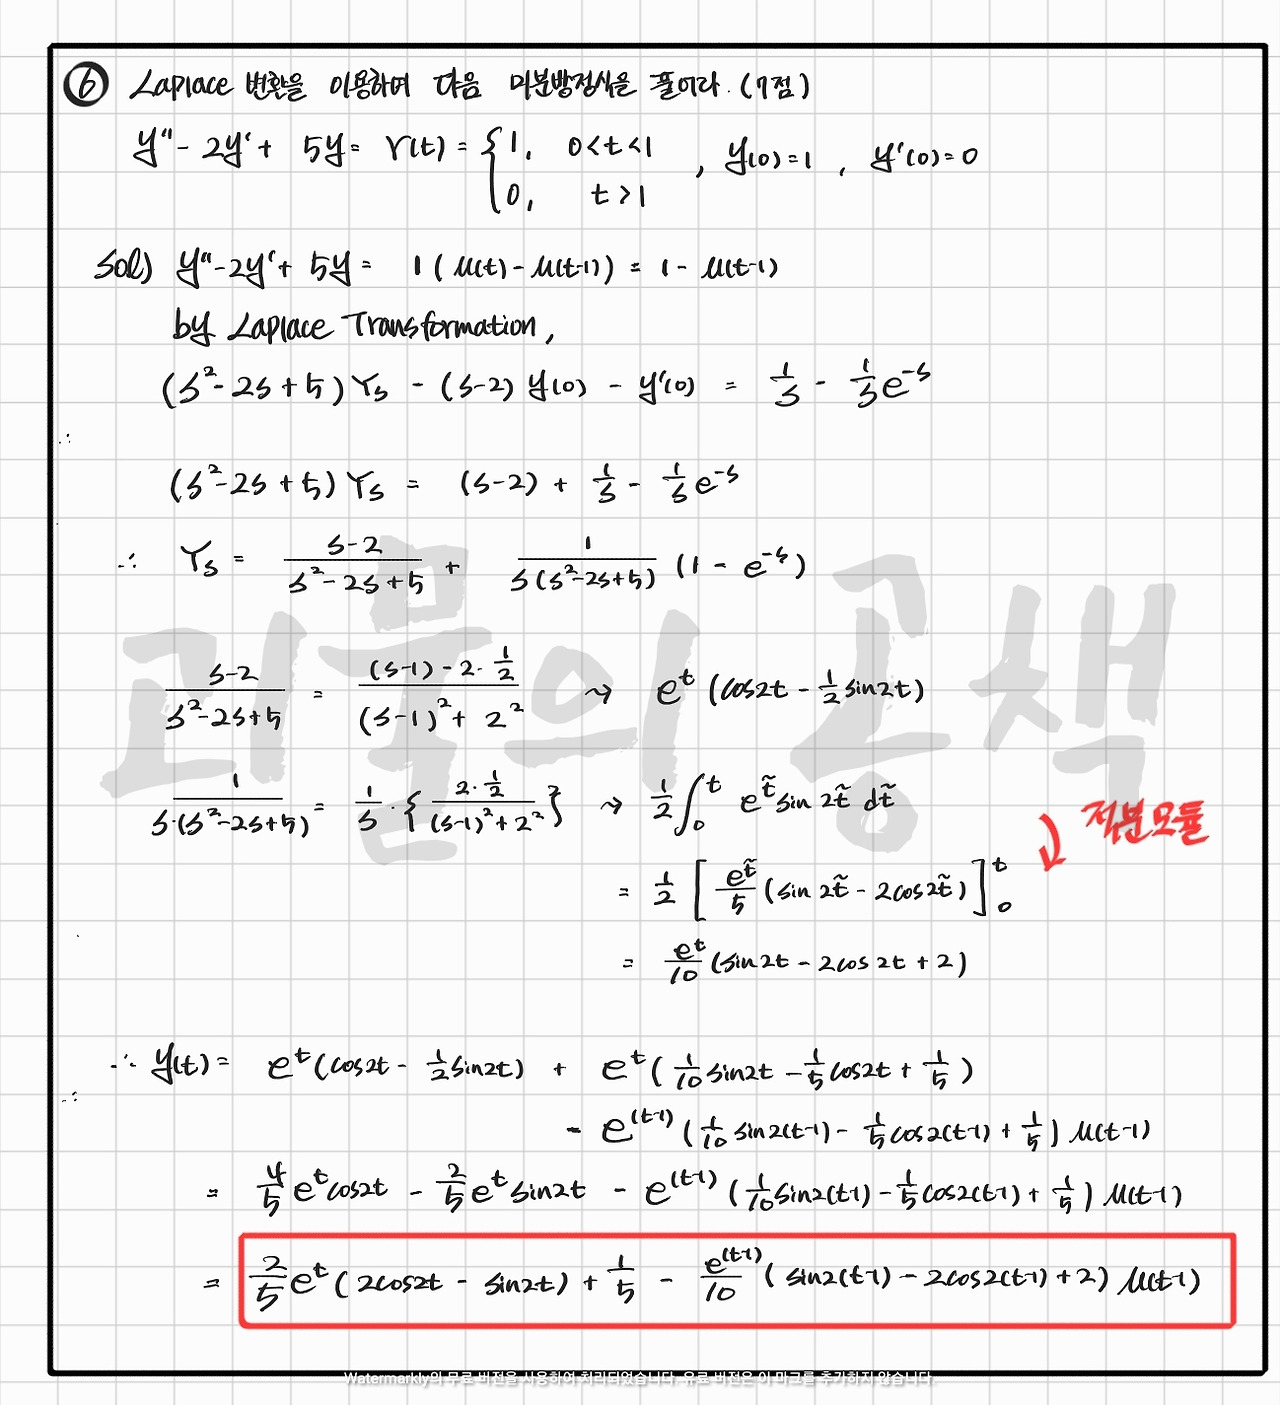 ⑥ Laplace 변환을 이용하여 다음 미분방정식을 풀어라. (7점)
y'' - 2y' + 5y = r(t) = { 1, 0<t<1 , y(0)=1 , y'(0)=0
0, t>1
Sol) y''-2y'+ 5y = 1(u(t)-u(t-1)) = 1 - u(t-1)
by Laplace Transformation,
(s²-2s+5)Ys - (s-2) y(0) - y'(0) = 1/s - 1/s e^-s
∴
(s²-2s+5)Ys = (s-2) + 1/s - 1/s e^-s
∴ Ys = (s-2)/(s²-2s+5) + 1/(s(s²-2s+5)) (1 - e^-s)
(s-2)/(s²-2s+5) = ((s-1)-2·1/2)/((s-1)²+2²) ⇝ e^t (cos2t - 1/2 sin2t)
1/(s·(s²-2s+5)) = 1/s · { (2·1/2)/((s-1)²+2²) } ⇝ 1/2 ∫₀^t e^t̃ sin 2t̃ dt̃
적분모듈
= 1/2 [ e^t̃/5 (sin 2t̃ - 2cos2t̃) ]₀^t
= e^t/10 (sin2t - 2cos 2t + 2)
∴ y(t) = e^t(cos2t - 1/2 sin2t) + e^t(1/10 sin2t - 1/5 cos2t + 1/5)
- e^(t-1) (1/10 sin2(t-1) - 1/5 cos2(t-1) + 1/5) u(t-1)
∴
= 4/5 e^t cos2t - 2/5 e^t sin2t - e^(t-1) (1/10 sin2(t-1) - 1/5 cos2(t-1) + 1/5) u(t-1)
= 2/5 e^t (2cos2t - sin2t) + 1/5 - e^(t-1)/10 (sin2(t-1) - 2cos2(t-1) + 2) u(t-1)
괴물의 공책
Watermarkly의 무료 버전을 사용하여 처리되었습니다. 유료 버전은 이 마크를 추가하지 않습니다.